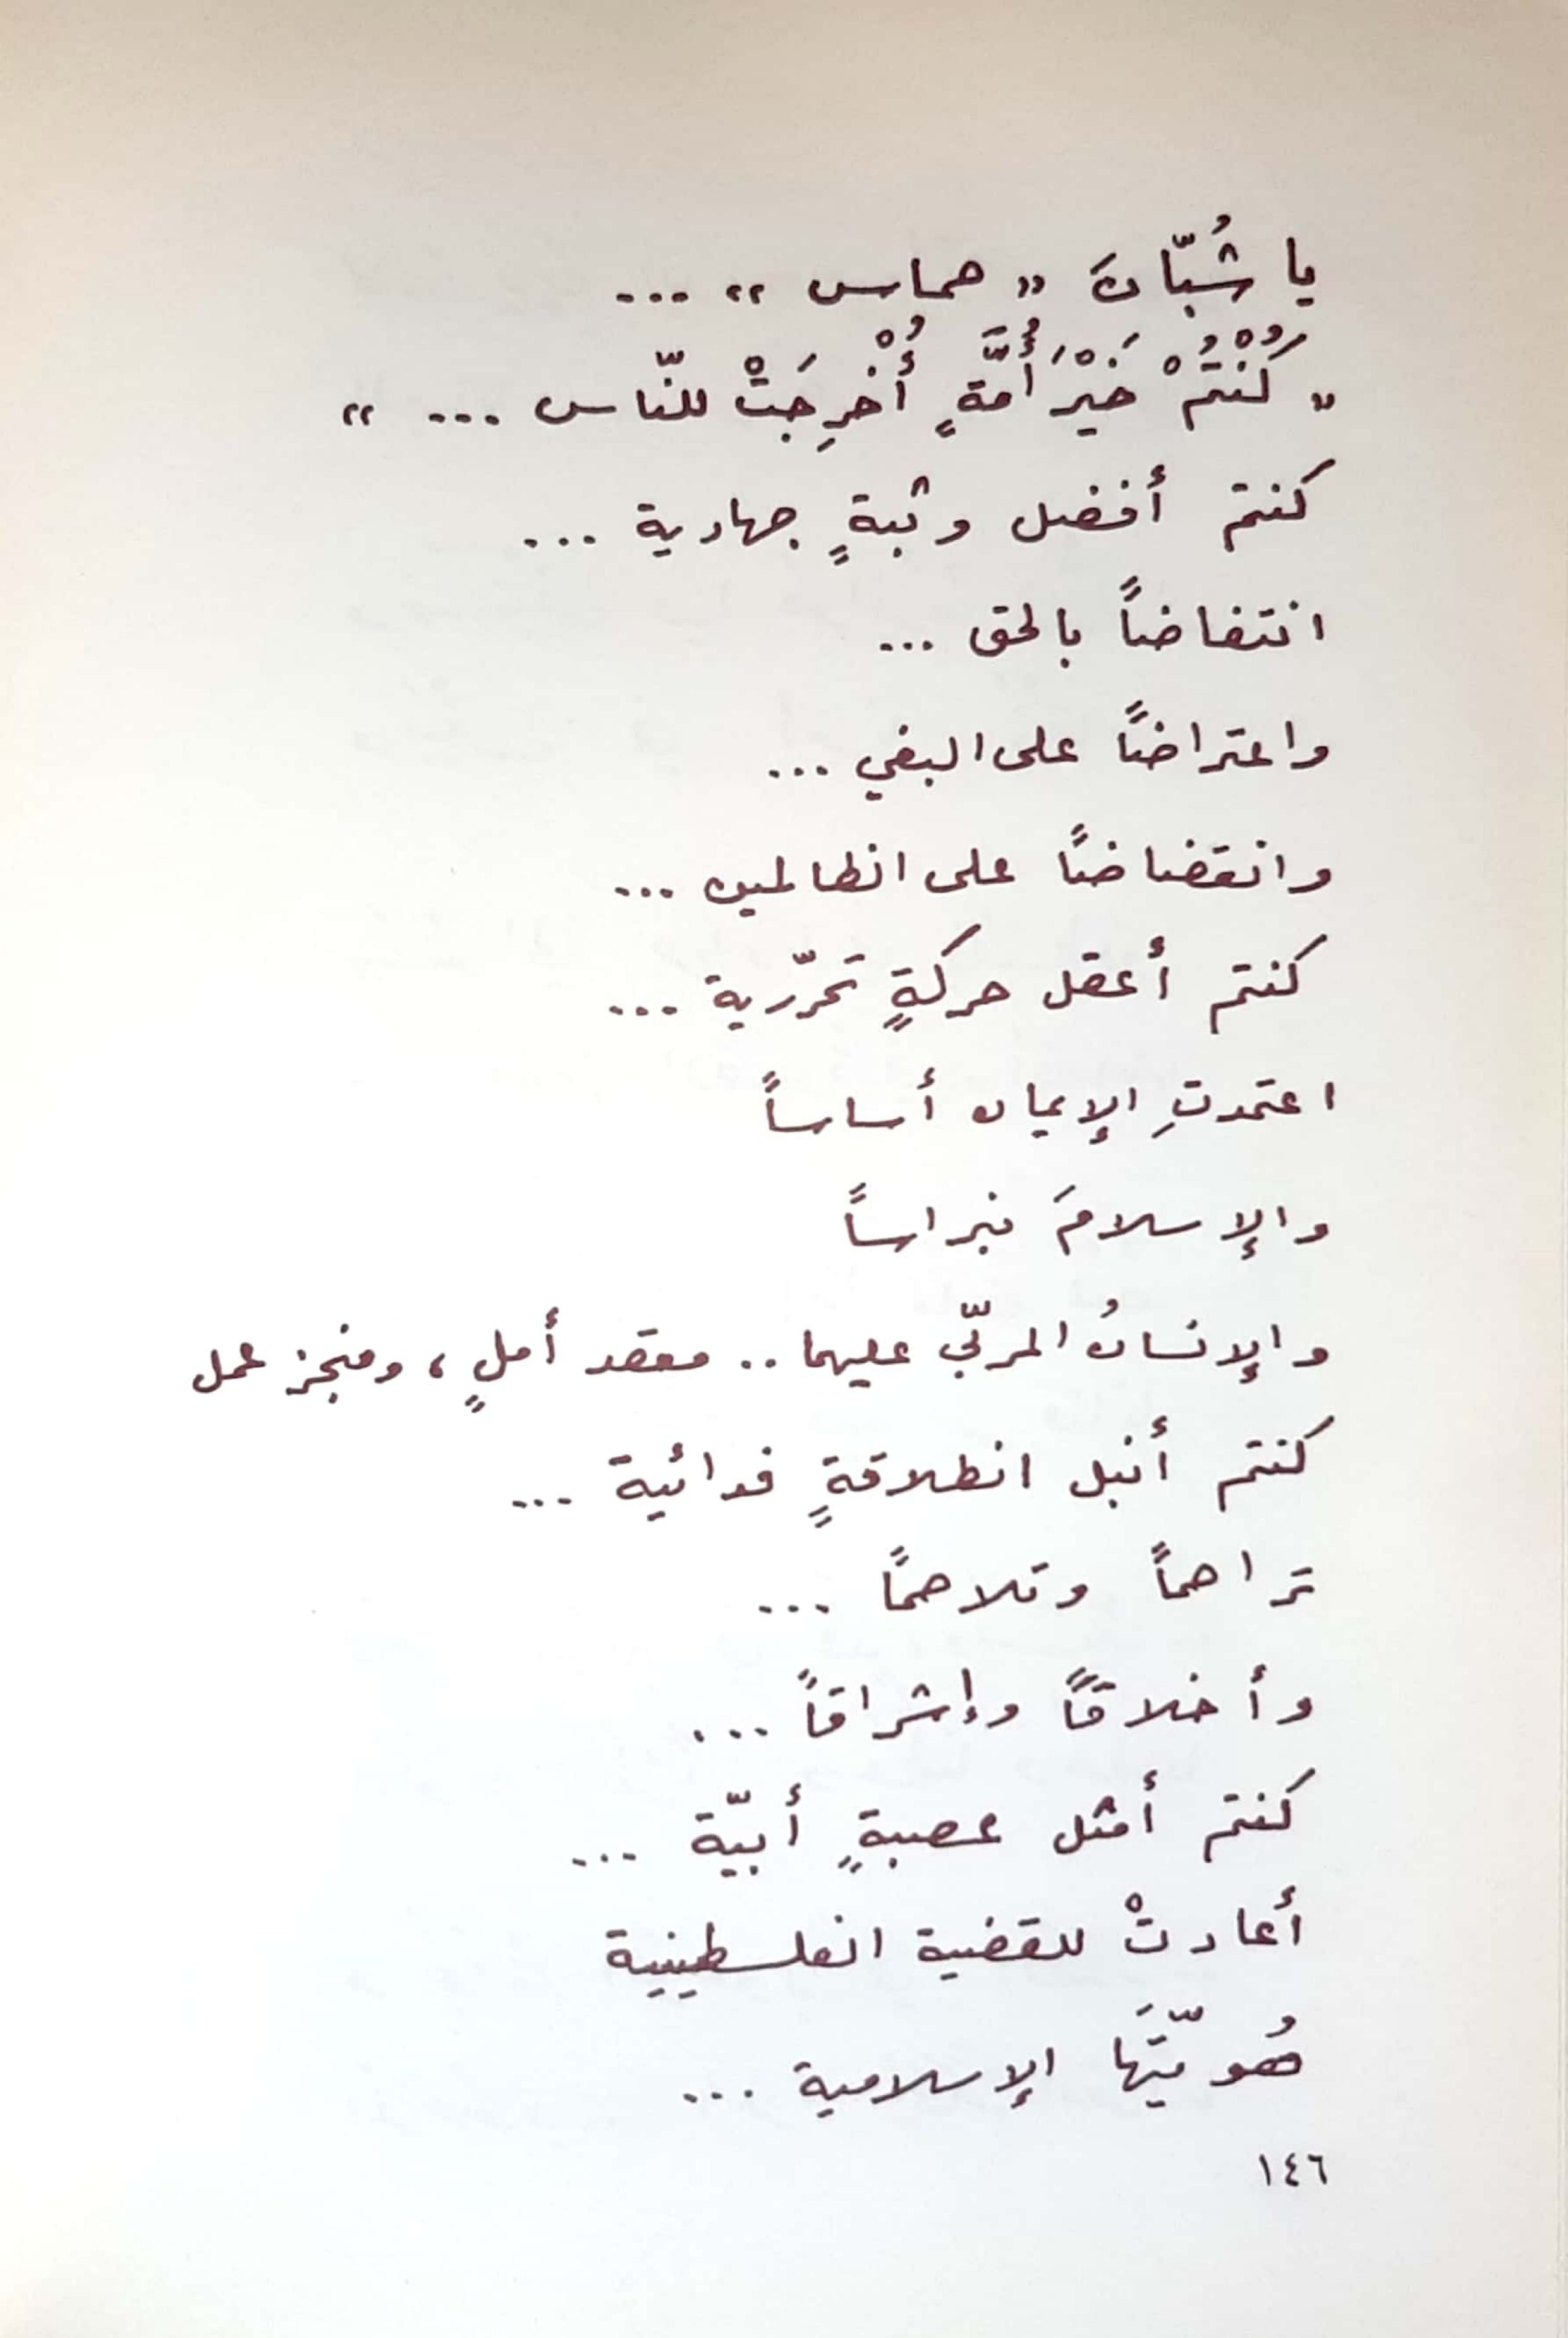 يا شُبّانَ « حماس » ...
« كُنْتُمْ خَيْرَ أُمَّةٍ أُخْرِجَتْ للنّاس ... »
كنتم أفضل وثبةٍ جهادية ...
انتفاضاً بالحق ...
واعتراضاً على البغي ...
وانقضاضاً على الظالمين ...
كنتم أعقل حركةٍ تحرّرية ...
اعتمدتِ الإيمان أساساً
والإسلامَ نبراساً
والإنسانُ المربّي عليهما .. معقد أملٍ ، ومنجز عمل
كنتم أنبل انطلاقةٍ فدائية ...
تراحماً وتلاحماً ...
وأخلاقاً وإشراقاً ...
كنتم أمثل عصبةٍ أبيّة ...
أعادتْ للقضية الفلسطينية
هُويّتَها الإسلامية ...
١٤٦